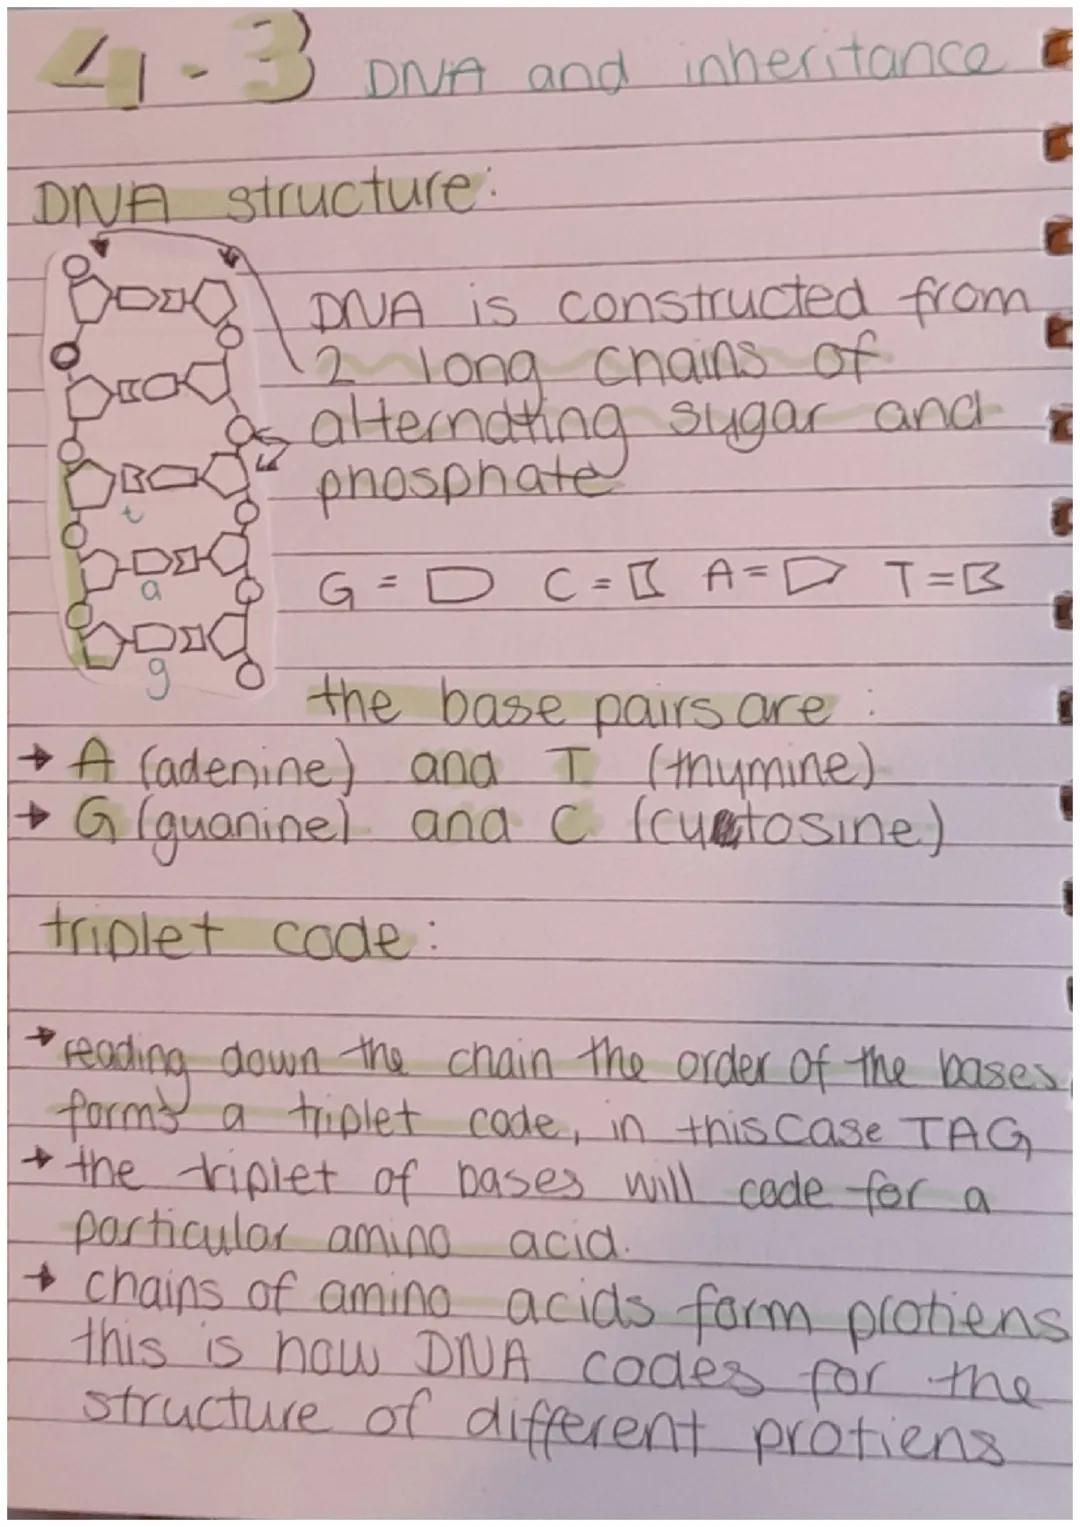 4.3 DNA and inheritance
DNA structure:
DNA is constructed from
2 long chains of
alternating sugar and
phosphate
t
a
g
G = C = A = T =
the base pairs are :
→ A (adenine) and T (thymine)
→ G (guanine) and C (cytosine)
triplet code:
→ reading down the chain the order of the bases
forms a triplet code, in this case TAG
→ the triplet of bases will code for a
particular amino acid.
→ chains of amino acids form protiens
this is how DNA codes for the
structure of different protiens